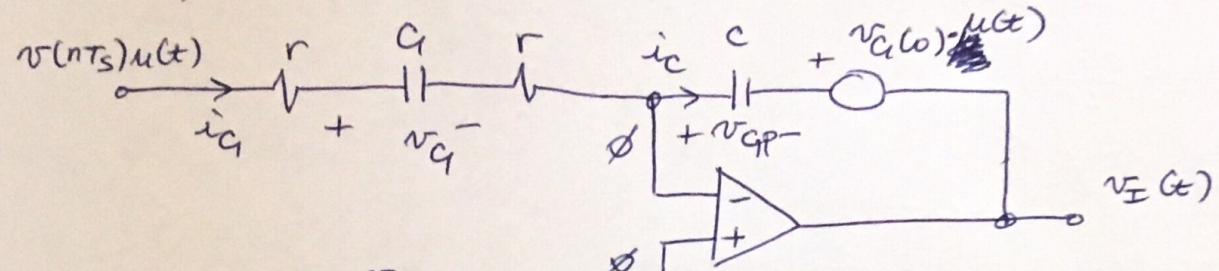 v(nTs)u(t) r C₁ r i_C C + v_C(0)·u(t)
i_C₁ + v_C₁ - ø + v_CP -
- v_I(t)
ø +